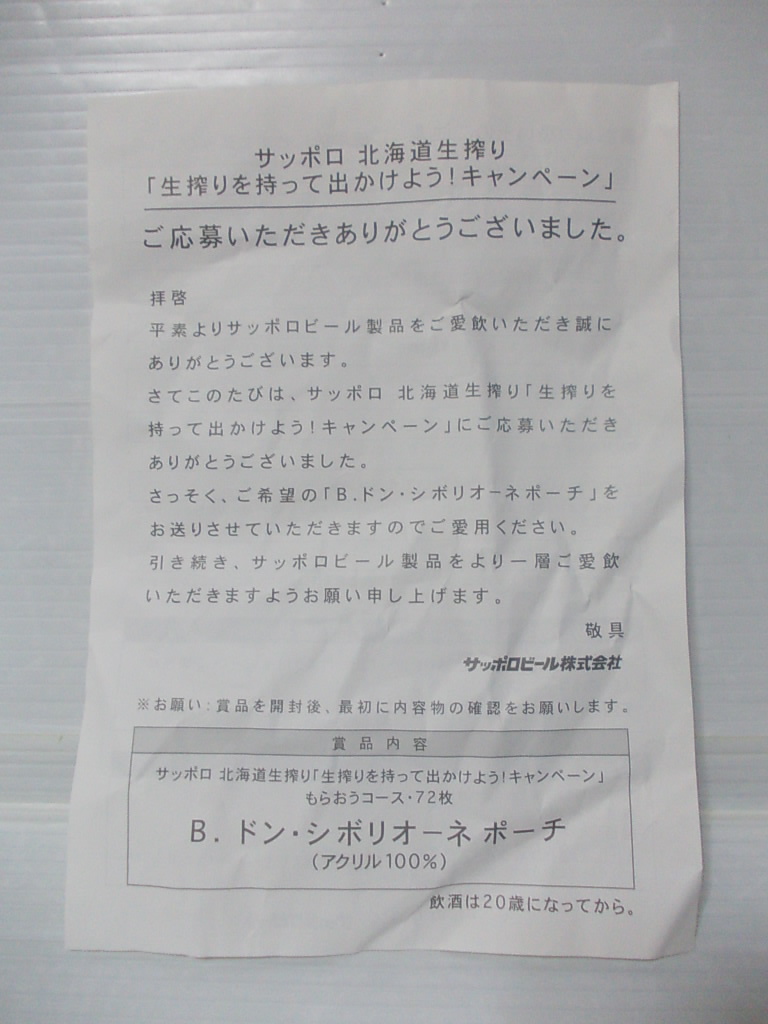 サッポロ 北海道生搾り
「生搾りを持って出かけよう!キャンペーン」
ご応募いただきありがとうございました。
拝啓
平素よりサッポロビール製品をご愛飲いただき誠に
ありがとうございます。
さてこのたびは、サッポロ 北海道生搾り「生搾りを
持って出かけよう!キャンペーン」にご応募いただき
ありがとうございました。
さっそく、ご希望の「B.ドン・シボリオーネポーチ」を
お送りさせていただきますのでご愛用ください。
引き続き、サッポロビール製品をより一層ご愛飲
いただきますようお願い申し上げます。
敬具
サッポロビール株式会社
※お願い:賞品を開封後、最初に内容物の確認をお願いします。
賞品内容
サッポロ 北海道生搾り「生搾りを持って出かけよう!キャンペーン」
もらおうコース・72枚
B. ドン・シボリオーネ ポーチ
(アクリル100%)
飲酒は20歳になってから。